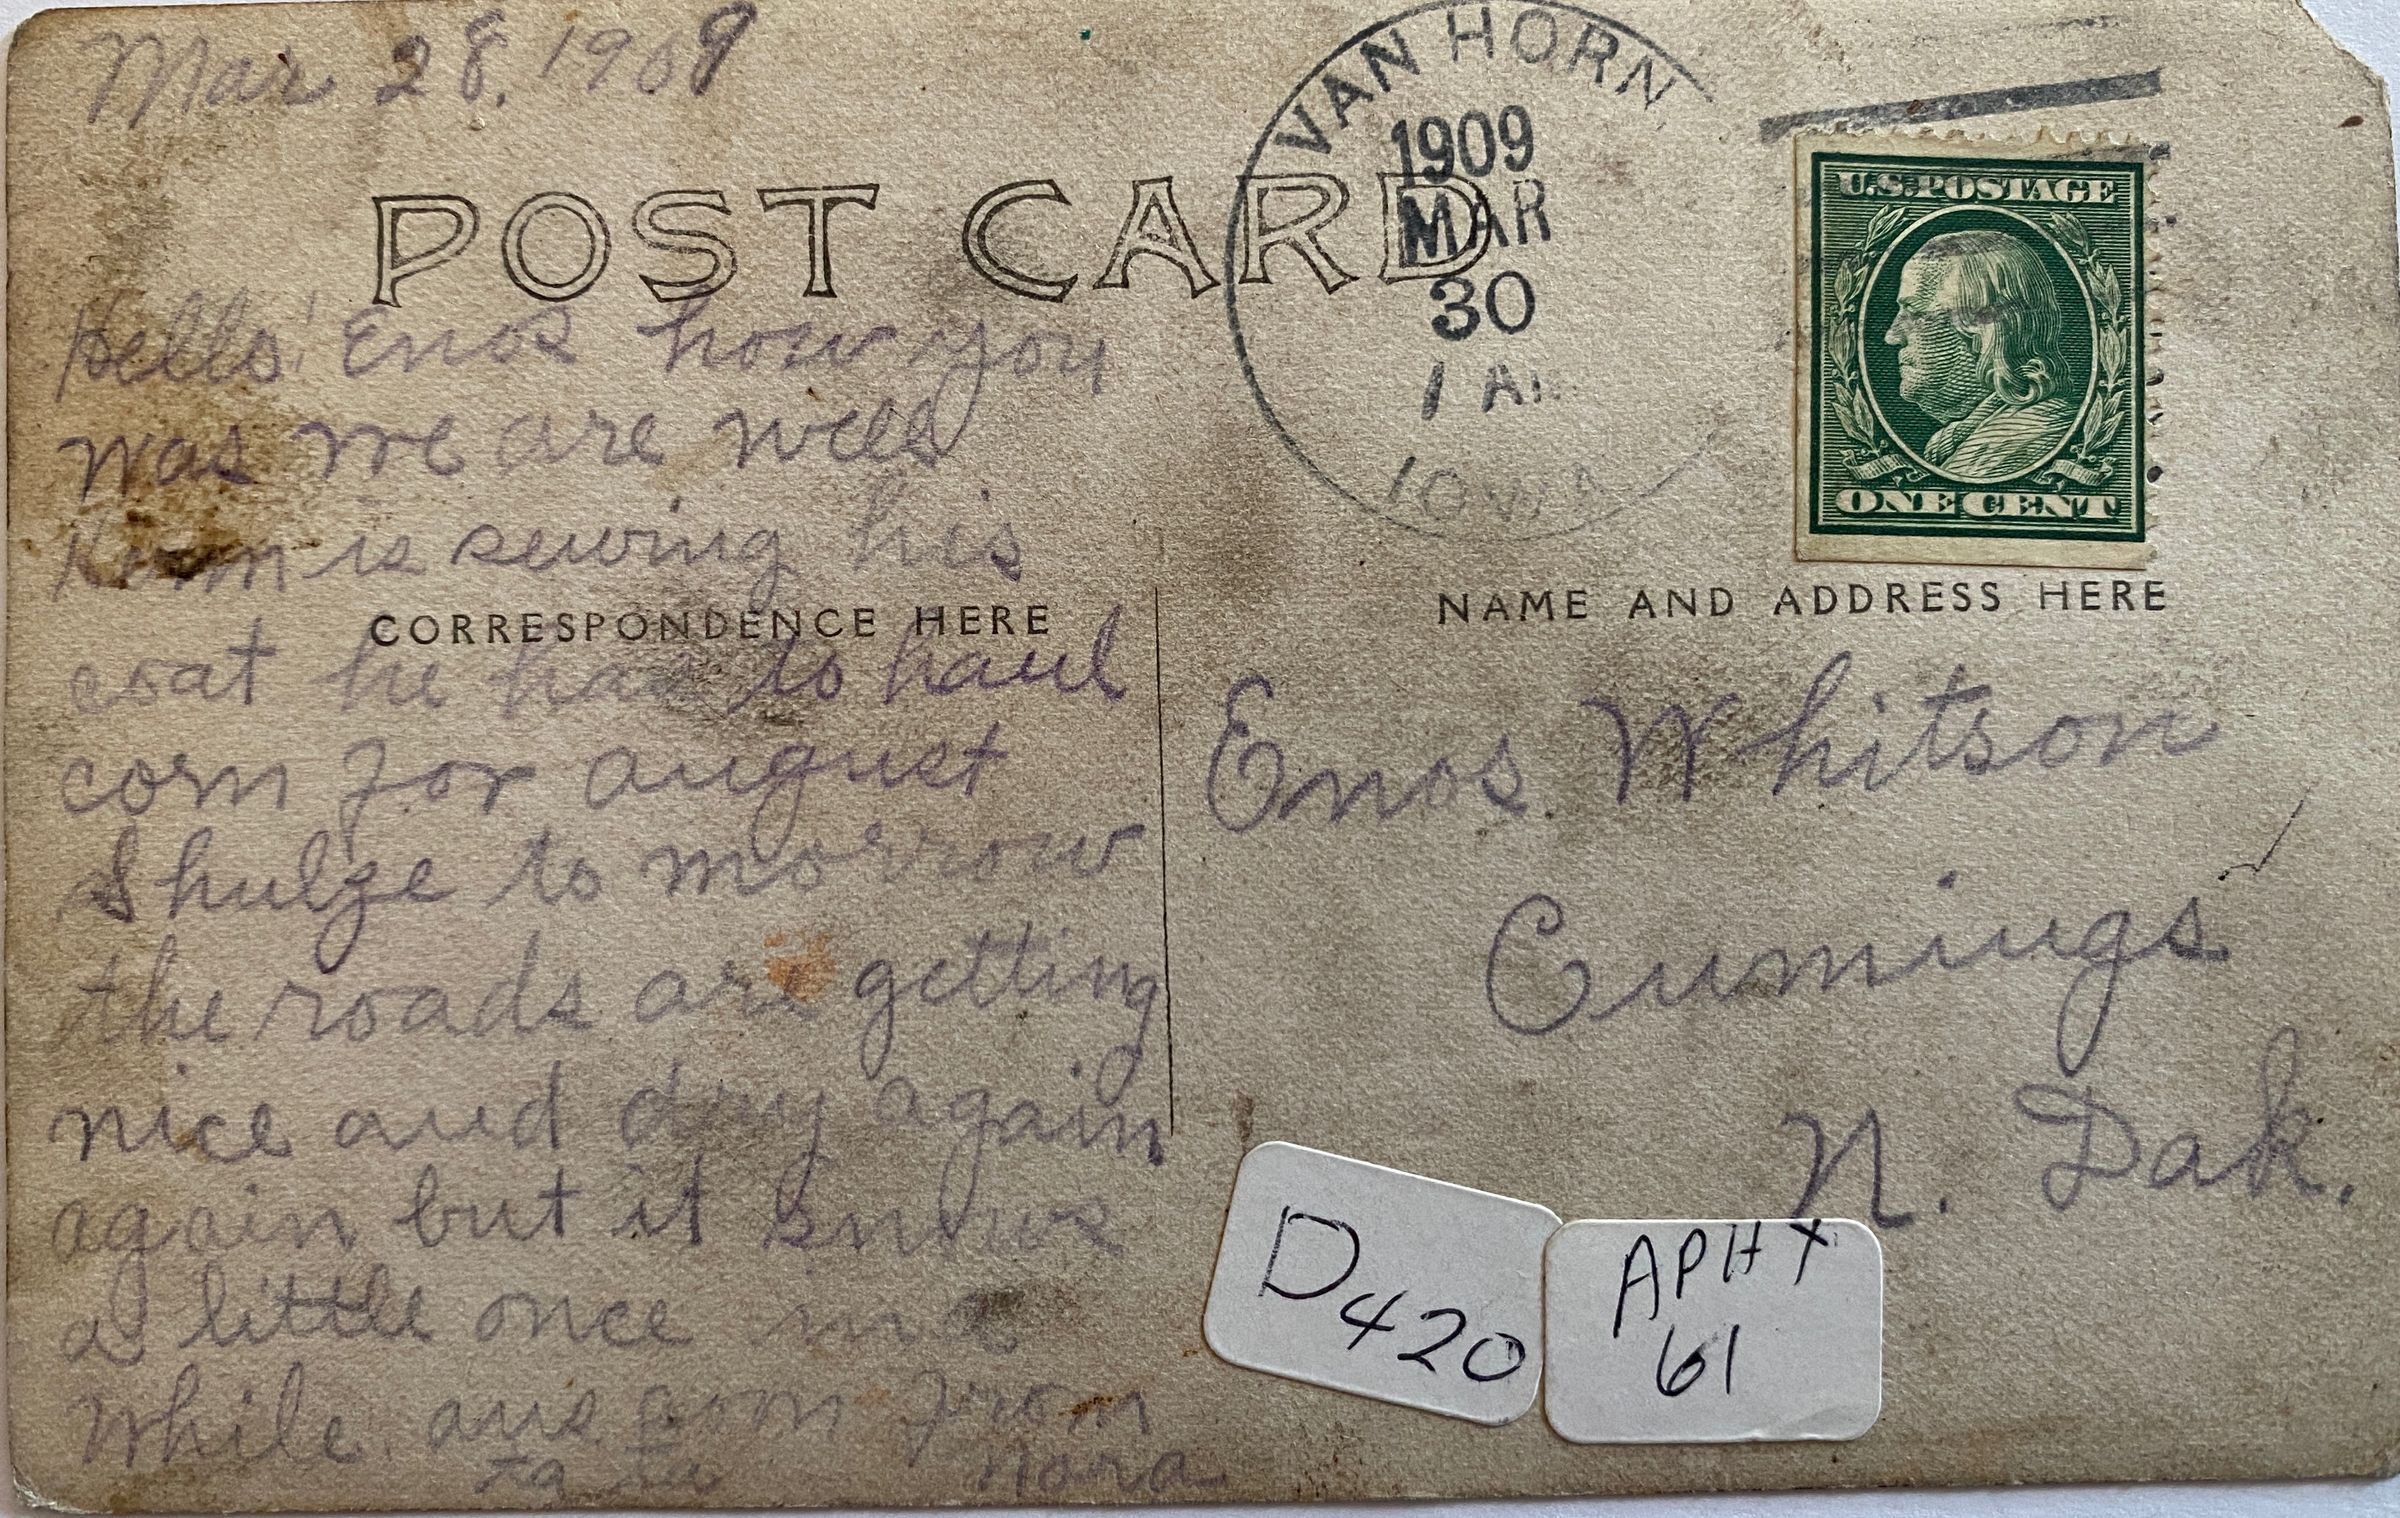 Mar 28, 1909
VAN HORN
1909
MAR
30
1 A
IOWA
U.S. POSTAGE
ONE CENT
POST CARD
CORRESPONDENCE HERE
Hello! Enos how you
was we are well
is sewing his
coat he has to haul
corn for august
Shulze to morrow
the roads are getting
nice and dry again
again but it snows
a little once in a
While. ans. soon from
ta ta Nora
NAME AND ADDRESS HERE
Enos. Whitson
Cumings
N. Dak.
D420
APHX
61